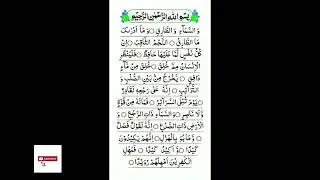 بِسْمِ اللّٰهِ الرَّحْمٰنِ الرَّحِیْمِ
وَ السَّمَآءِ وَ الطَّارِقِ ۙ وَ مَاۤ اَدْرٰىكَ
مَا الطَّارِقُ ۙ النَّجْمُ الثَّاقِبُ ۙ اِنْ
كُلُّ نَفْسٍ لَّمَّا عَلَیْهَا حَافِظٌ ؕ فَلْیَنْظُرِ
الْاِنْسَانُ مِمَّ خُلِقَ ؕ خُلِقَ مِنْ مَّآءٍ
دَافِقٍ ۙ یَّخْرُجُ مِنْۢ بَیْنِ الصُّلْبِ وَ
التَّرَآىِٕبِ ؕ اِنَّهٗ عَلٰى رَجْعِهٖ لَقَادِرٌ ؕ
یَوْمَ تُبْلَى السَّرَآىِٕرُ ۙ فَمَا لَهٗ مِنْ قُوَّةٍ
وَّ لَا نَاصِرٍ ؕ وَ السَّمَآءِ ذَاتِ الرَّجْعِ ۙ وَ
الْاَرْضِ ذَاتِ الصَّدْعِ ۙ اِنَّهٗ لَقَوْلٌ فَصْلٌ ۙ
وَّ مَا هُوَ بِالْهَزْلِ ؕ اِنَّهُمْ یَكِیْدُوْنَ
كَیْدًا ۙ وَّ اَكِیْدُ كَیْدًا ۚ فَمَهِّلِ
الْكٰفِرِیْنَ اَمْهِلْهُمْ رُوَیْدًا